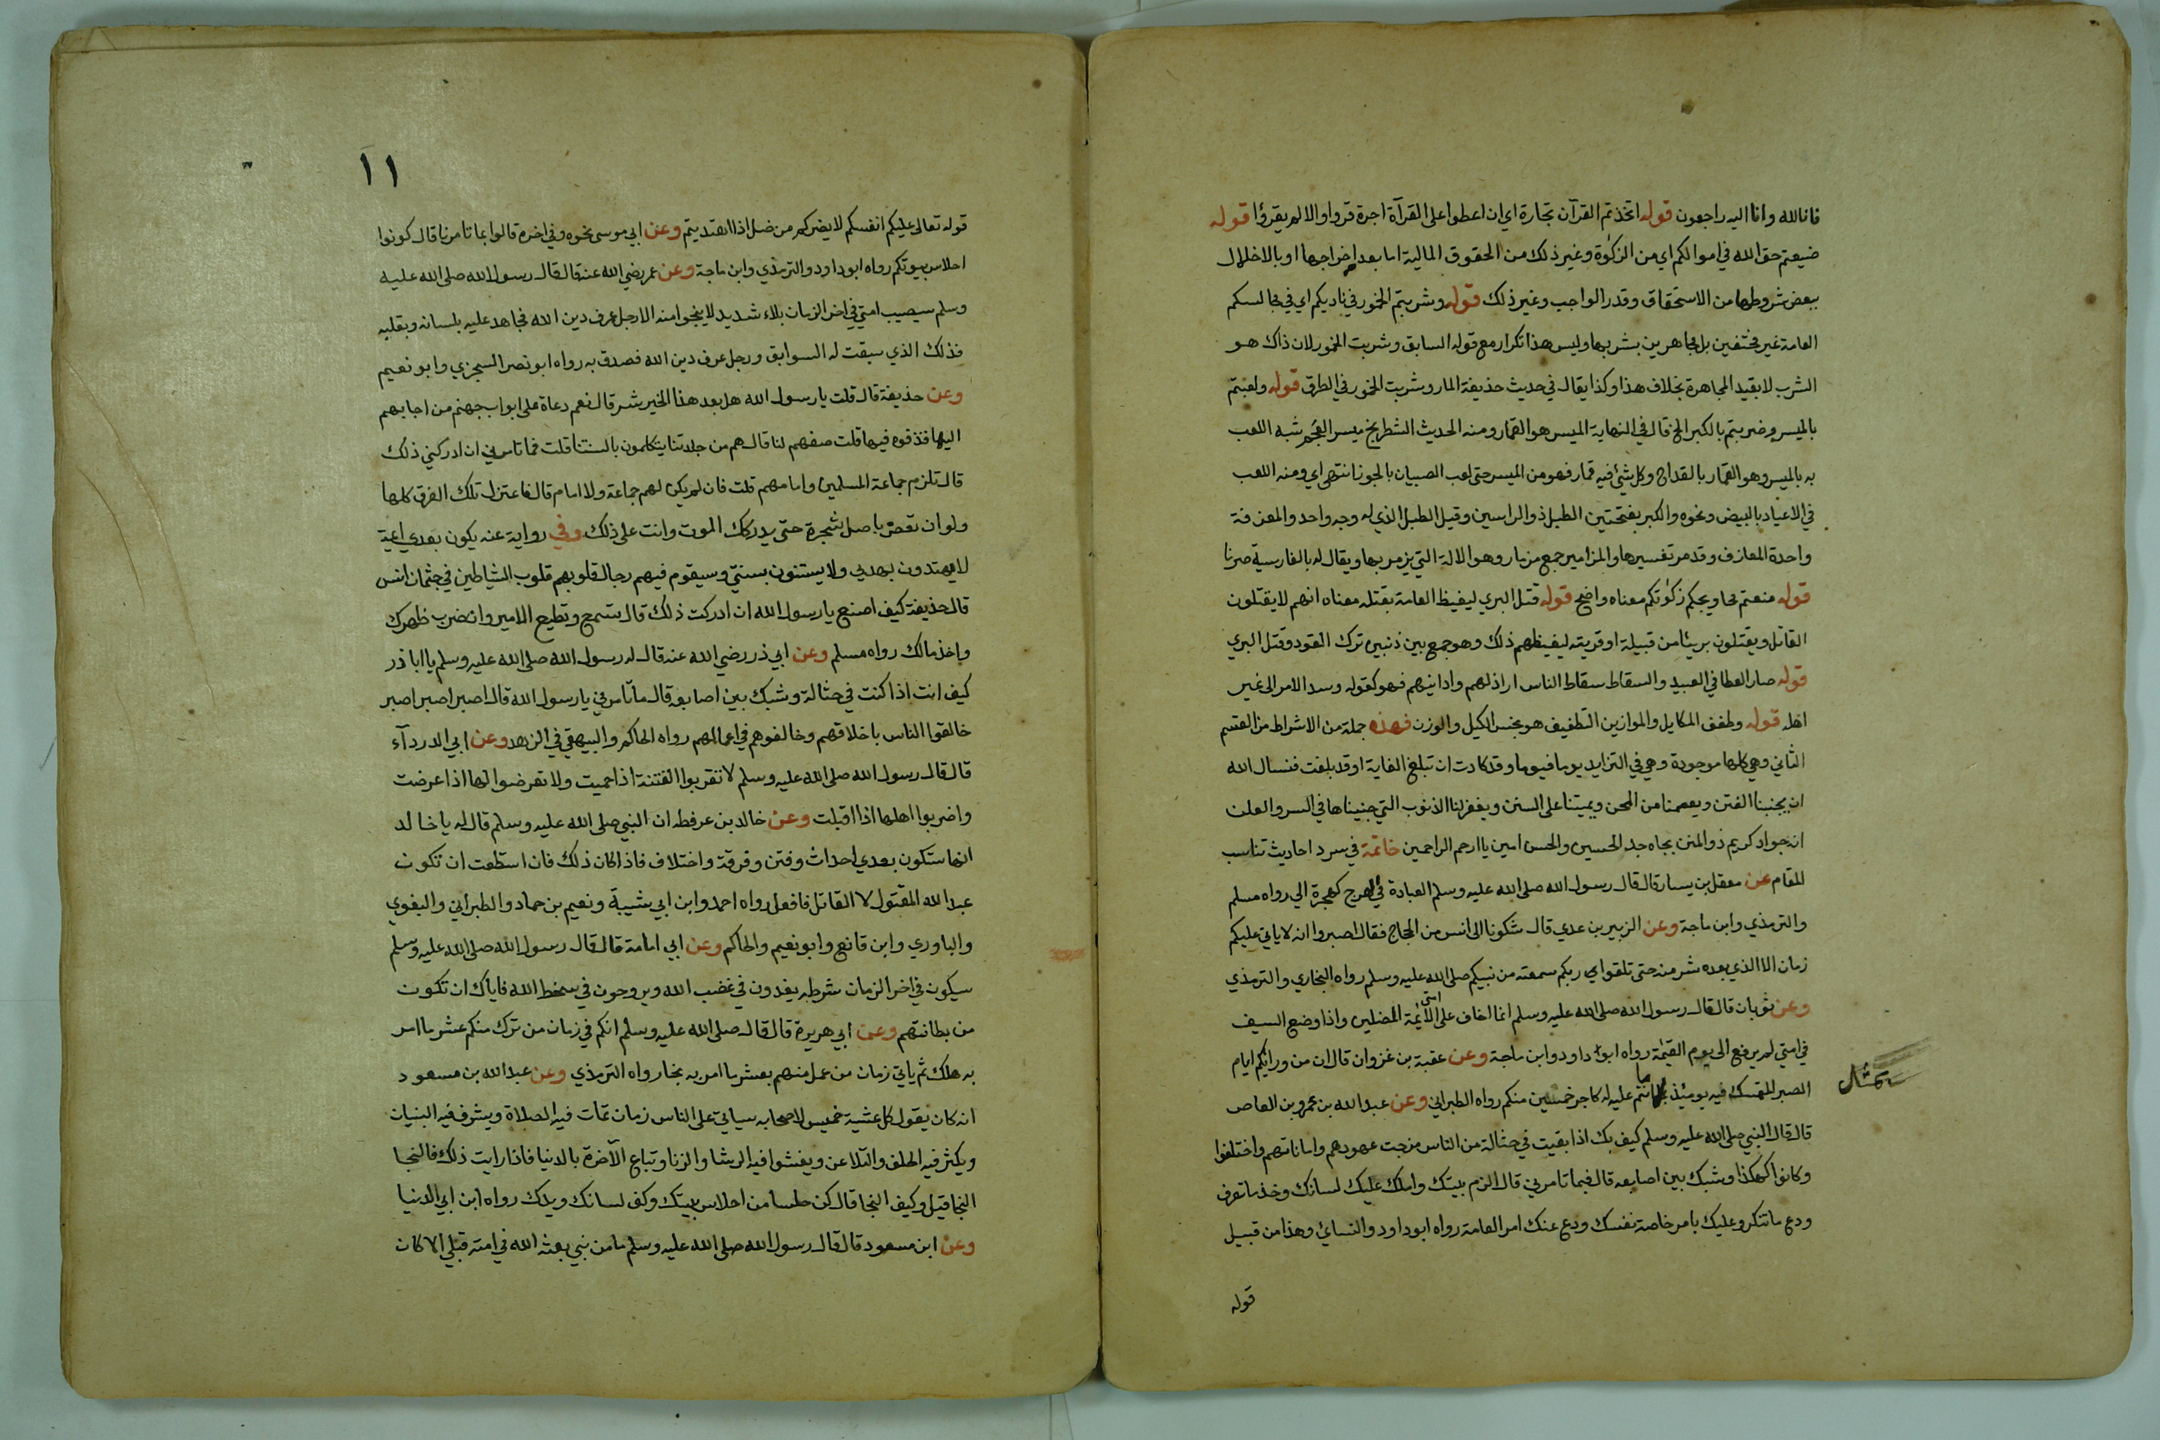 فانا لله وانا اليه راجعون قوله اتخذتم القرآن تجارة اي ان اعطوا على القرآة اجرة قروا والا لم يقرؤا قوله
ضيعتم حق الله في اموالكم اي من الزكوٰة وغير ذلك من الحقوق المالية اما بعد اخراجها او بالاخلال
ببعض شروطها من الاستحقاق وقدر الواجب وغير ذلك قوله وشربتم الخمور في ناديكم اي في مجالسكم
العامة غير مختفين بل مجاهرين بشربها وليس هذا تكرار مع قوله السابق وشربت الخمور لان ذاك هو
الشرب لا بقيد المجاهرة بخلاف هذا وكذا يقال في حديث حذيفة المار وشربت الخمور في الطرق قوله ولعبتم
بالميسر وضربتم بالكبر الخ قال في النهاية الميسر هو القمار ومنه الحديث الشطرنج ميسر العجم شبه اللعب
به بالميسر وهو القمار بالقداح وكل شئ فيه قمار فهو من الميسر حتى لعب الصبيان بالجوز انتهى اي ومنه اللعب
في الاعياد بالبيض ونحوه والكبر بفتحتين الطبل ذو الراسين وقيل الطبل الذي له وجه واحد والمعزفة
واحدة المعازف وقد مر تفسيرها والمزامير جمع مزمار وهو الالة التي يزمر بها ويقال له بالفارسية صرنا
قوله منعتم محاويجكم زكوٰتكم معناه واضح قوله قتل البري ليغيظ العامة بقتله معناه انهم لا يقتلون
القاتل ويقتلون بريئا من قبيلة او قريته ليغيظهم ذلك وهو جمع بين ذنبين ترك القود وقتل البري
قوله صار العطا في العبيد والسقاط سقاط الناس اراذلهم وادانيهم فهو كقوله وسد الامر الى غير
اهله قوله وطفف المكايل والموازين التطفيف هو بخس الكيل والوزن فهذه جملة من الاشراط من القسم
الثاني وهي كلها موجودة وهي في التزايد يوما فيوما وقد كادت ان تبلغ الغاية او قد بلغت فنسال الله
ان يجنبنا الفتن ويعصمنا من المحن ويميتنا على السنن ويغفر لنا الذنوب التي جنيناها في السر والعلن
انه جواد كريم ذو المنن بجاه جد الحسين والحسن امين يا ارحم الراحمين خاتمة في سرد احاديث تناسب
المقام عن معقل بن يسار قال قال رسول الله صلى الله عليه وسلم العبادة في الهرج كهجرة الي رواه مسلم
والترمذي وابن ماجة وعن الزبير بن عدي قال شكونا الى انس من الحجاج فقال اصبروا انه لا ياتي عليكم
زمان الا الذي بعده شر منه حتى تلقوا اي ربكم سمعته من نبيكم صلى الله عليه وسلم رواه البخاري والترمذي
وعن ثوبان قال قال رسول الله صلى الله عليه وسلم انما اخاف على امتي الائمة المضلين واذا وضع السيف
في امتي لم يرفع الى يوم القيٰمة رواه ابو داود وابن ماجة وعن عقبة بن غزوان قال ان من ورائكم ايام
الصبر للمتمسك فيه يومئذ بما انتم عليه له كاجر خمسين منكم رواه الطبراني وعن عبد الله بن عمرو بن العاص
بمثل
قال قال النبي صلى الله عليه وسلم كيف بك اذا بقيت في حثالة من الناس مرجت عهودهم واماناتهم واختلفوا
وكانوا هكذا وشبك بين اصابعه قال فبما تامرني قال الزم بيتك واملك عليك لسانك وخذ ما تعرف
ودع ما تنكر وعليك بامر خاصة نفسك ودع عنك امر العامة رواه ابو داود والنسائي وهذا من قبيل
قوله
١١
قوله تعالى عليكم انفسكم لا يضركم من ضل اذا اهتديتم وعن ابي موسى نحوه وفي اخره قالوا بما تامرنا قال كونوا
احلاس بيوتكم رواه ابو داود والترمذي وابن ماجة وعن عمر رضي الله عنه قال قال رسول الله صلى الله عليه
وسلم سيصيب امتي في اخر الزمان بلاء شديد لا ينجو منه الا رجل عرف دين الله فجاهد عليه بلسانه وبقلبه
فذلك الذي سبقت له السوابق ورجل عرف دين الله فصدق به رواه ابو نصر السجزي وابو نعيم
وعن حذيفة قال قلت يا رسول الله هل بعد هذا الخير شر قال نعم دعاة على ابواب جهنم من اجابهم
اليها قذفوه فيها قلت صفهم لنا قال هم من جلدتنا يتكلمون بالسنتنا قلت فما تامرني ان ادركني ذلك
قال تلزم جماعة المسلمين وامامهم قلت فان لم يكن لهم جماعة ولا امام قال فاعتزل تلك الفرق كلها
ولو ان تعض باصل شجرة حتى يدركك الموت وانت على ذلك وفي رواية عنه يكون بعدي ايمة
لا يهتدون بهديي ولا يستنون بسنتي وسيقوم فيهم رجال قلوبهم قلوب الشياطين في جثمان انس
قال حذيفة كيف اصنع يا رسول الله ان ادركت ذلك قال تسمع وتطيع الامير وان ضرب ظهرك
واخذ مالك رواه مسلم وعن ابي ذر رضي الله عنه قال له رسول الله صلى الله عليه وسلم يا ابا ذر
كيف انت اذا كنت في حثالة وشبك بين اصابعه قال ما تامرني يا رسول الله قال اصبر اصبر اصبر
خالقوا الناس باخلاقهم وخالفوهم في اعمالهم رواه الحاكم والبيهقي في الزهد وعن ابي الدردآء
قال قال رسول الله صلى الله عليه وسلم لا تقربوا الفتنة اذا حميت ولا تعرضوا لها اذا عرضت
واضربوا اهلها اذا اقبلت وعن خالد بن عرفطه ان النبي صلى الله عليه وسلم قال له يا خالد
انها ستكون بعدي احداث وفتن وفرقة واختلاف فاذا كان ذلك فان استطعت ان تكون
عبد الله المقتول لا القاتل فافعل رواه احمد وابن ابي شيبة ونعيم بن حماد والطبراني والبغوي
والباوري وابن قانع وابو نعيم والحاكم وعن ابي امامة قال قال رسول الله صلى الله عليه وسلم
سيكون في اخر الزمان شرطه يغدون في غضب الله ويروحون في سخط الله فاياك ان تكون
من بطانتهم وعن ابي هريرة قال قال صلى الله عليه وسلم انكم في زمان من ترك منكم عشر ما امر
به هلك ثم ياتي زمان من عمل منهم بعشر ما امر به نجا رواه الترمذي وعن عبد الله بن مسعود
انه كان يقول كل عشية خميس لاصحابه سياتي على الناس زمان تمات فيه الصلاة ويشرف فيه البنيان
ويكثر فيه الحلف والتلاعن ويفشوا فيه الرشا والزنا وتباع الآخرة بالدنيا فاذا رايت ذلك فالنجا
النجا قيل وكيف النجا قال كن حلسا من احلاس بيتك وكف لسانك ويدك رواه ابن ابي الدنيا
وعن ابن مسعود قال قال رسول الله صلى الله عليه وسلم ما من نبي بعثه الله في امته قبلي الا كان